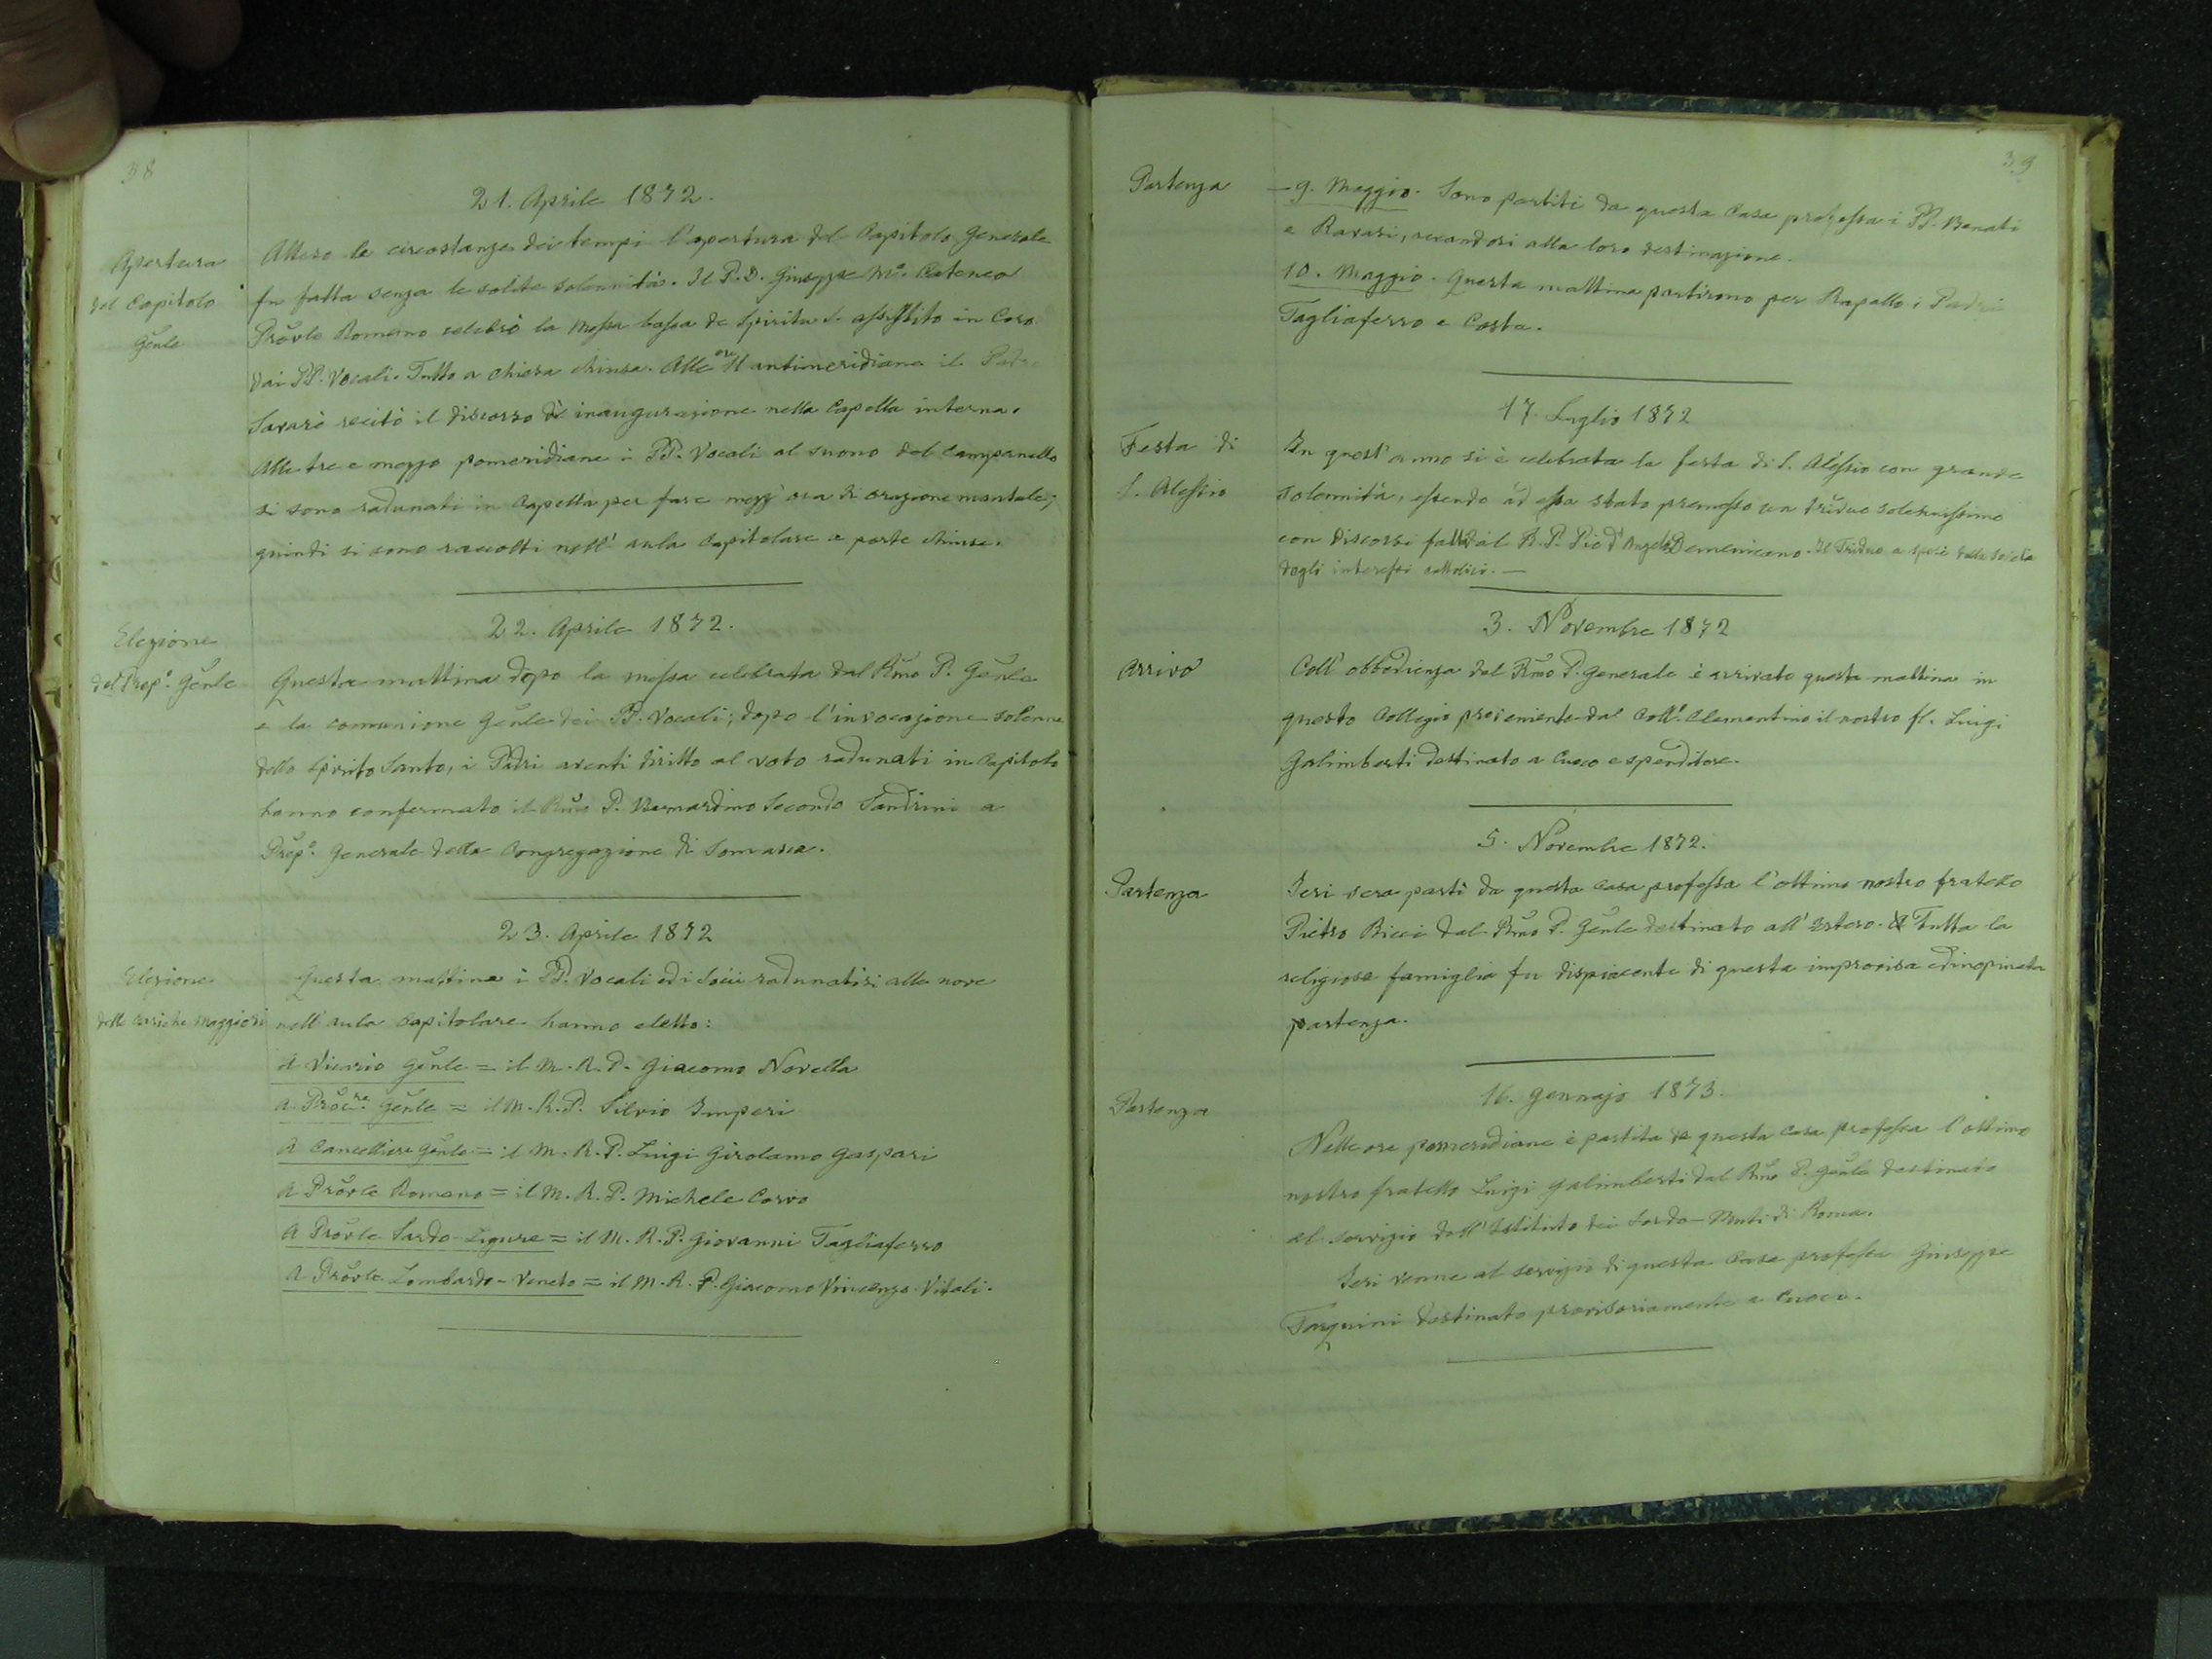 38
21. Aprile 1872.
Apertura
del Capitolo
Gẽnle
Atteso le circostanze dei tempi l'apertura del Capitolo Generale
fu fatta senza le solite solennità. Il P. D. Giuseppe Mª. Cataneo
Prõvle Romano celebrò la Messa bassa de Spiritu S. assistito in Coro
dai PP. Vocali. Tutto a chiesa chiusa. Alle ore 11 antimeridiane il
Savarè recitò il discorso di inaugurazione nella Capella interna.
Alle tre e mezzo pomeridiane i PP. Vocali al suono del campanello
si sono radunati in Capella per fare mezz'ora di orazione mentale;
quindi si sono raccolti nell'aula Capitolare a porte chiuse.
22. Aprile 1872.
Elezione
del Prepº. Gẽnle
Questa mattina dopo la messa celebrata dal Rm̃o P. Gẽnle
e la comunione Gẽnle dei PP. Vocali; dopo l'invocazione solenne
dello Spirito Santo, i Padri aventi diritto al voto radunati in Capitolo
hanno confermato il Rm̃o P. Bernardino Secondo Sandrini a
Prepº. Generale della Congregazione di Somasca.
23. Aprile 1872
Elezione
delle cariche maggiori
Questa mattina i PP. Vocali ed i Socii radunatisi alle nove
nell'aula Capitolare hanno eletto:
A Vicario Gẽnle = il M. R. P. Giacomo Novella
A Prõcre. Gẽnle = il M. R. P. Silvio Imperi
A Cancelliere Gẽnle = il M. R. P. Luigi Girolamo Gaspari
A Prõvle Romano = il M. R. P. Michele Corvo
A Prõvle Sardo-Ligure = il M. R. P. Giovanni Tagliaferro
A Prõvle Lombardo-Veneto = il M. R. P. Giacomo Vincenzo Vitali.
39
Partenza
— 9. Maggio. Sono partiti da questa Casa professa i PP. Benati
e Ravasi, recandosi alla loro destinazione.
10. Maggio. Questa mattina partirono per Rapallo i Padri
Tagliaferro e Costa.
17. Luglio 1872
Festa di
S. Alessio
In quest'anno si è celebrata la festa di S. Alessio con grande
solennità, essendo ad essa stato premesso un triduo solennissimo
con discorsi fatti dal R. P. Pio d'Angelo Domenicano. Il Triduo a spese della Società
degli interessi cattolici. —
3. Novembre 1872
Arrivo
Coll'obbedienza del Rm̃o P. Generale è arrivato questa mattina in
questo Collegio proveniente dal Coll.º Clementino il nostro fl. Luigi
Galimberti destinato a Cuoco e spenditore.
5. Novembre 1872.
Partenza
Ieri sera partì da questa casa professa l'ottimo nostro fratello
Pietro Ricci dal Rm̃o P. Gẽnle destinato all'Estero. Tutta la
religiosa famiglia fu dispiacente di questa improvisa ed inopinata
partenza.
16. Gennajo 1873.
Partenza
Nelle ore pomeridiane è partito da questa casa professa l'ottimo
nostro fratello Luigi Galimberti dal Rm̃o P. Gẽnle destinato
al servizio dell'Istituto dei Sordo-Muti di Roma.
Ieri venne al servizio di questa Casa professa Giuseppe
Tarquini destinato provisoriamente a Cuoco.